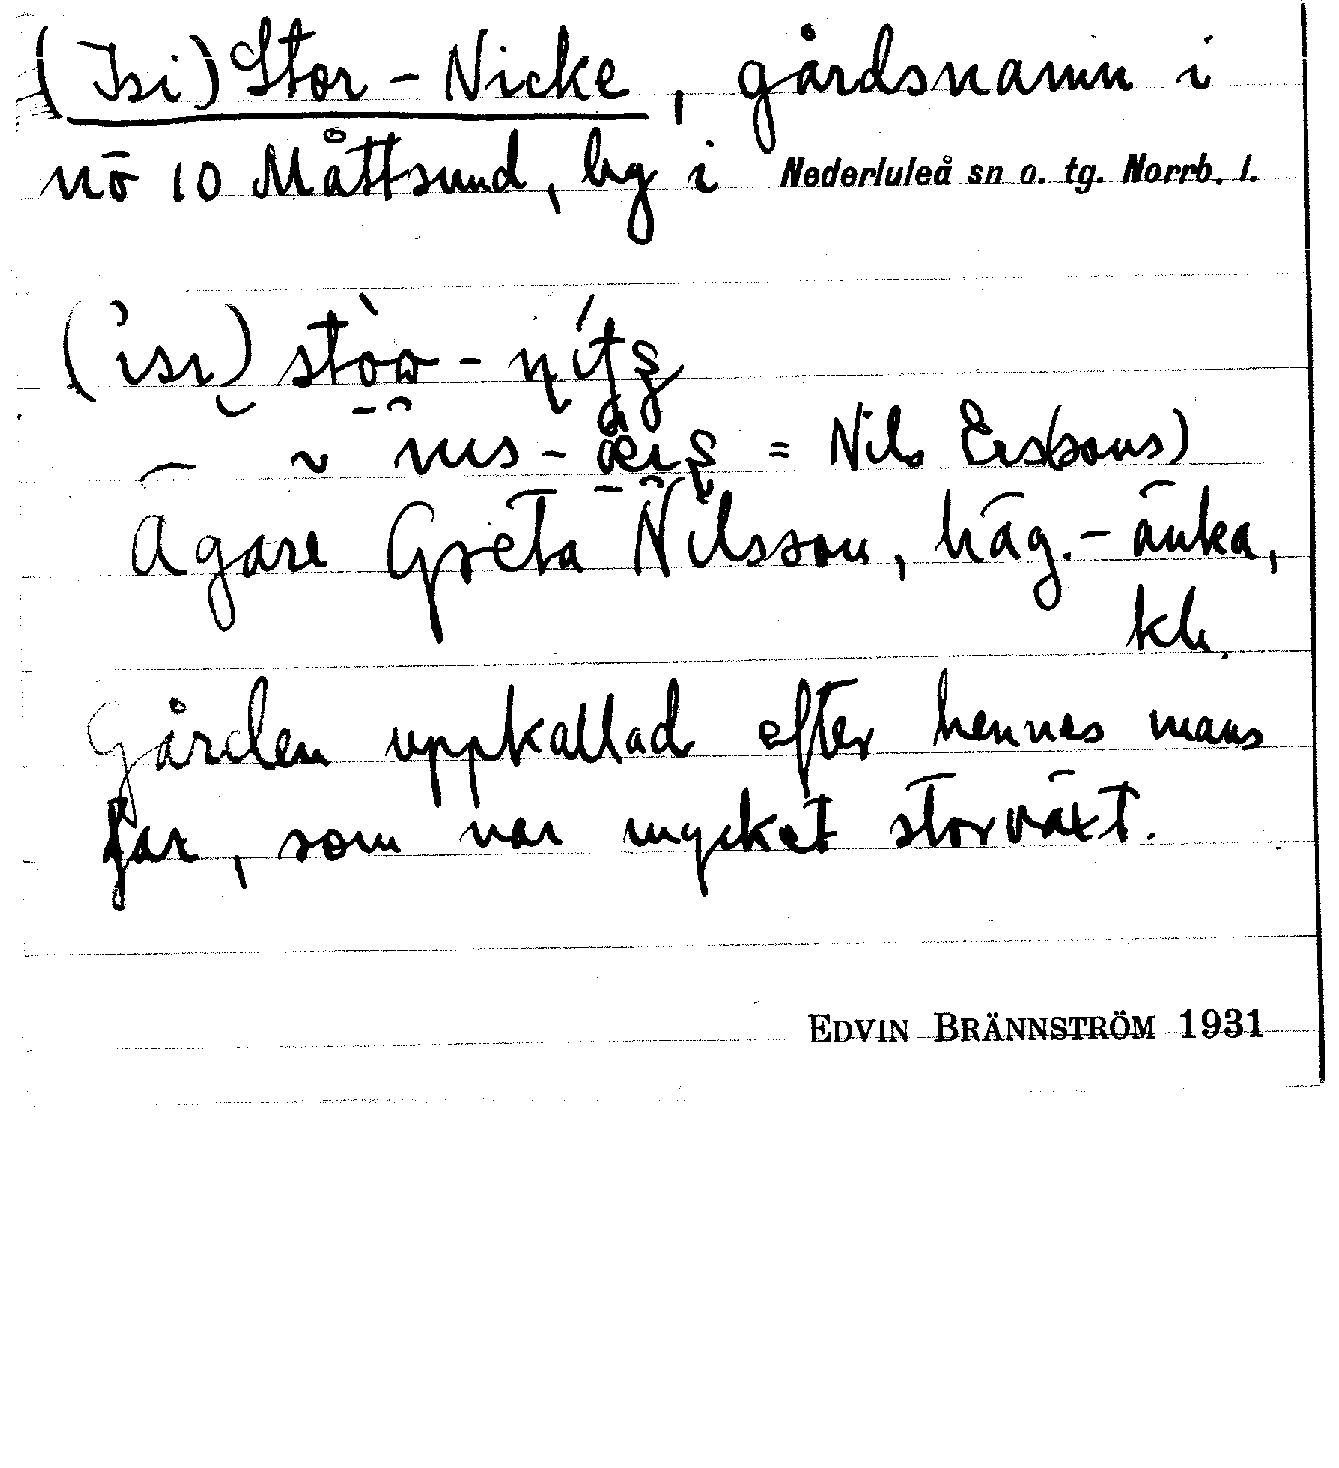 (Isi) Stor-Nicke, gårdsnamn i
nō 10 Måttsund, by i Nederluleå sn o. tg. Norrb. l.
= Nils Ers(sons)
Ägare Greta Nilsson, häg.-änka,
kh.
Gården uppkallad efter hennes mans
far, som var mycket storväxt.
EDVIN BRÄNNSTRÖM 1931